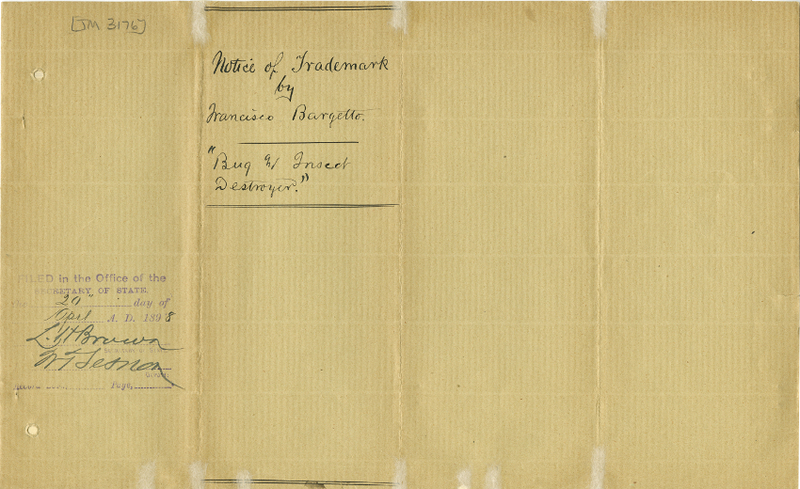 [JM 3176]
Notice of Trademark
by
Francisco Bargetto.
"Bug & Insect
Destroyer."
FILED in the Office of the
SECRETARY OF STATE
the 20" day of
April A. D. 1898
L. H. Brown
W. T. Sesnon
Page,